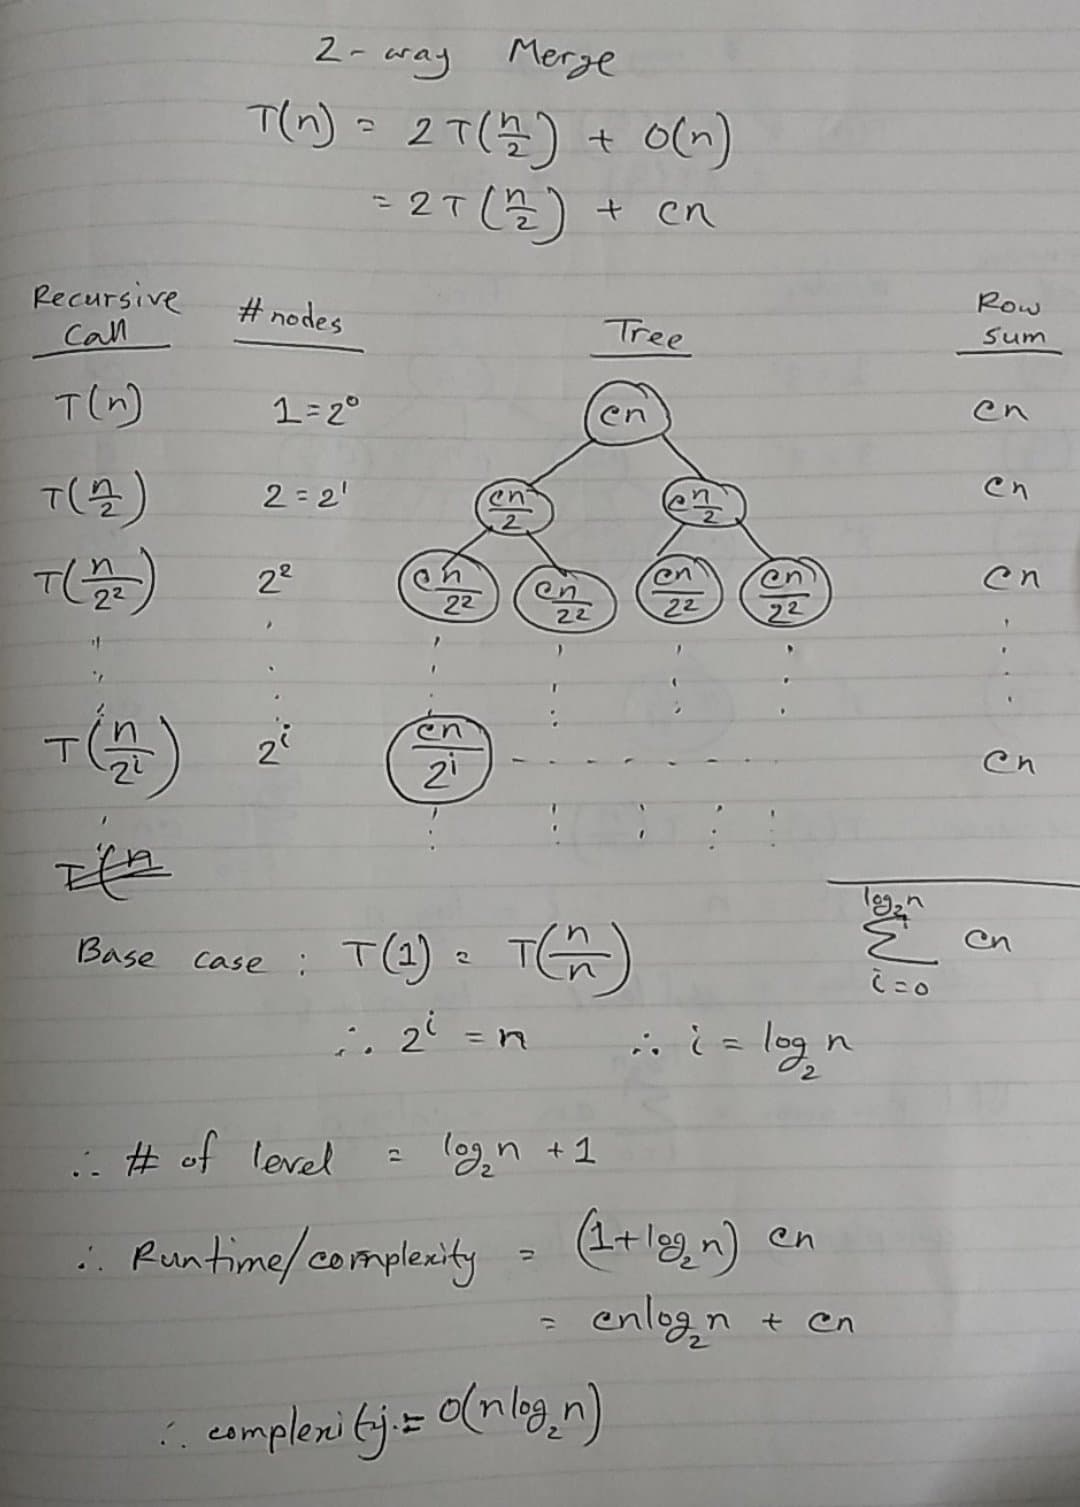 2-way Merge
T(n) = 2T(n/2) + O(n)
= 2T(n/2) + cn
Recursive Call # nodes Tree Row Sum
T(n) 1=2⁰ cn cn
T(n/2) 2=2¹ cn/2 cn/2 cn
T(n/2²) 2² cn/2² cn/2² cn/2² cn/2² cn
T(n/2ⁱ) 2ⁱ cn/2ⁱ cn
T(n
Base case : T(1) = T(n/n) ∑_{i=0}^{log₂n} cn
∴ 2ⁱ = n ∴ i = log₂n
∴ # of level = log₂n + 1
∴ Runtime/complexity = (1+log₂n) cn
= cnlog₂n + cn
∴ complexity = O(nlog₂n)